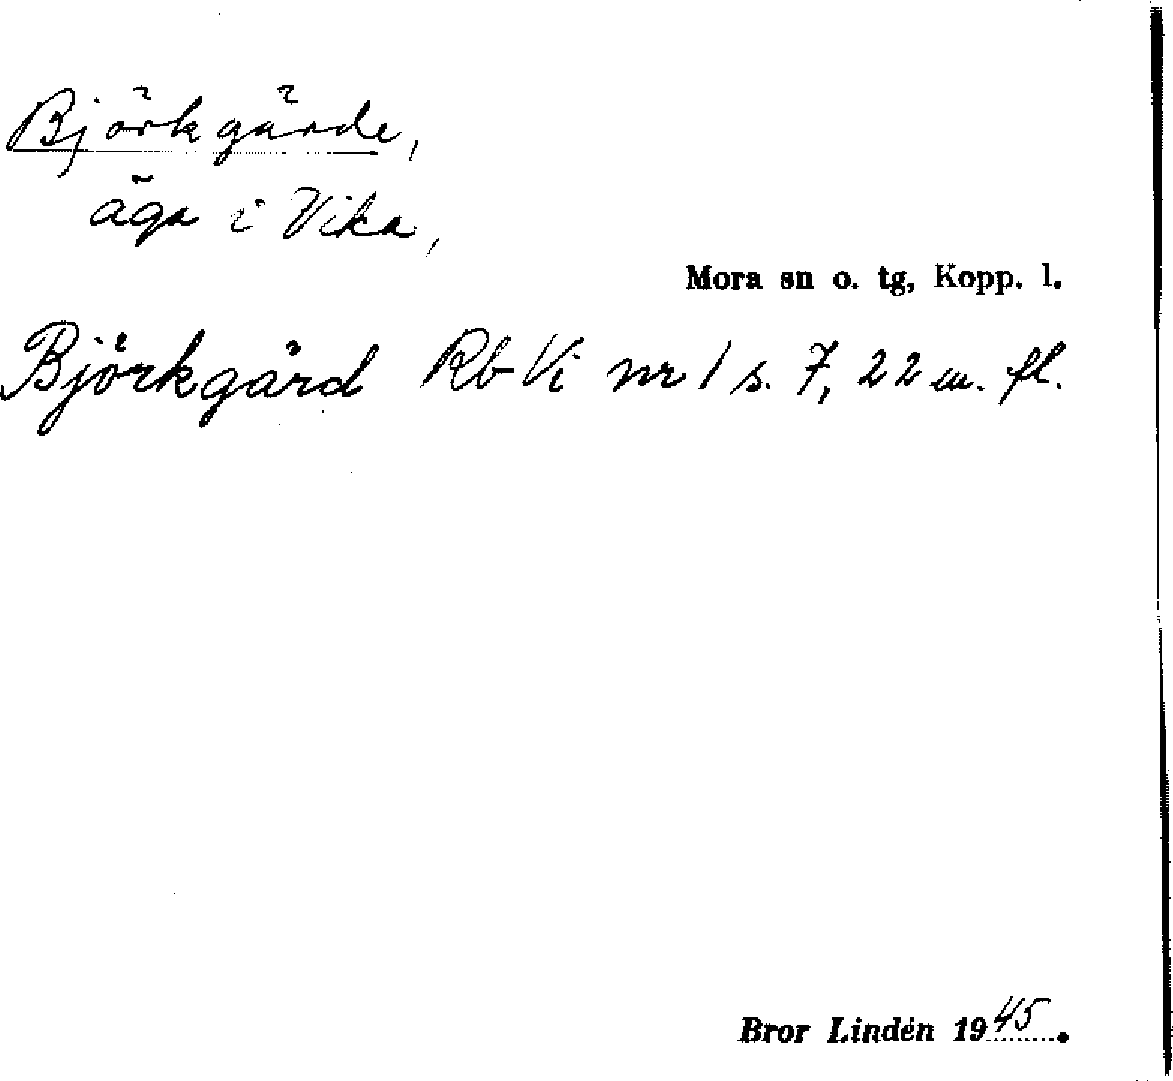 Björkgärde,
äga i Vika,
Mora sn o. tg, Kopp. l.
Björkgärd Rb Vi nr 1 s. 7, 22 m. fl.
Bror Lindén 1945.